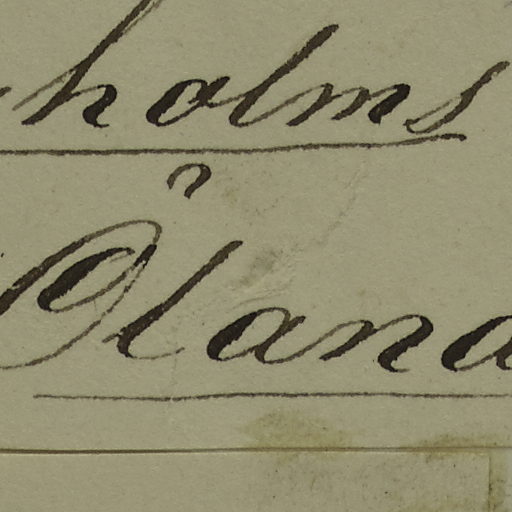 holms
Öland